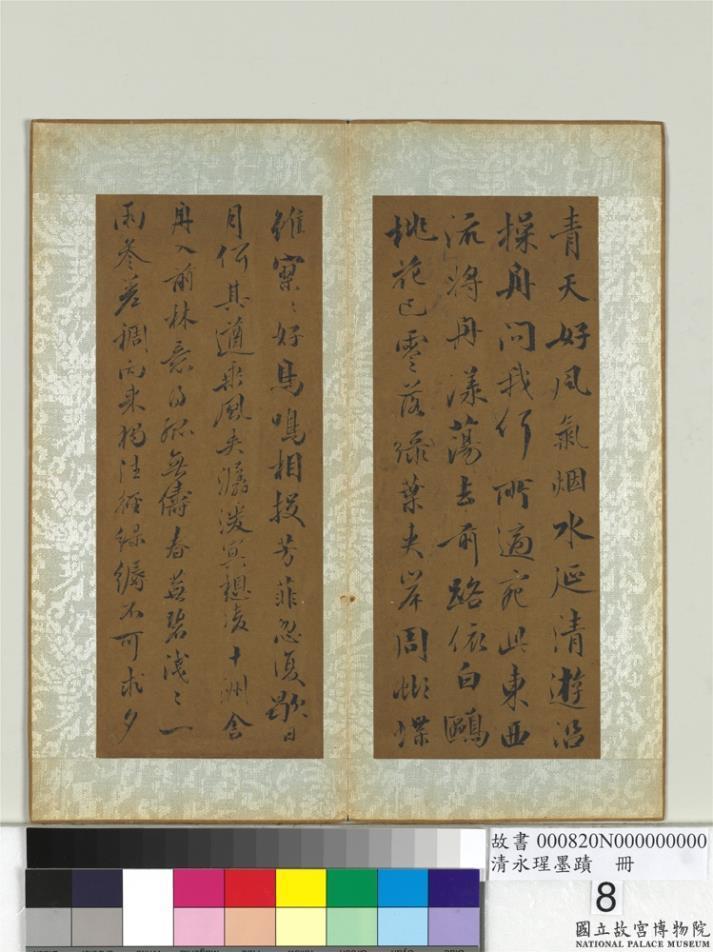 青天好風氣烟水延清遊沿
操舟問我何所適宛此東西
流將舟漾蕩去前路依白鷗
桃花已零落綠葉夾岸周蝶
雖寂〻好鳥鳴相投芳菲忽復歇日
月何其遒乘風夾潺湲冥想凌十洲舍
舟入前林意得孤無儔春草碧淺〻一
雨參差稠向來獨往徑綿不可求夕
故書 000820N000000000
清永瑆墨蹟 冊
8
國立故宮博物院
NATIONAL PALACE MUSEUM